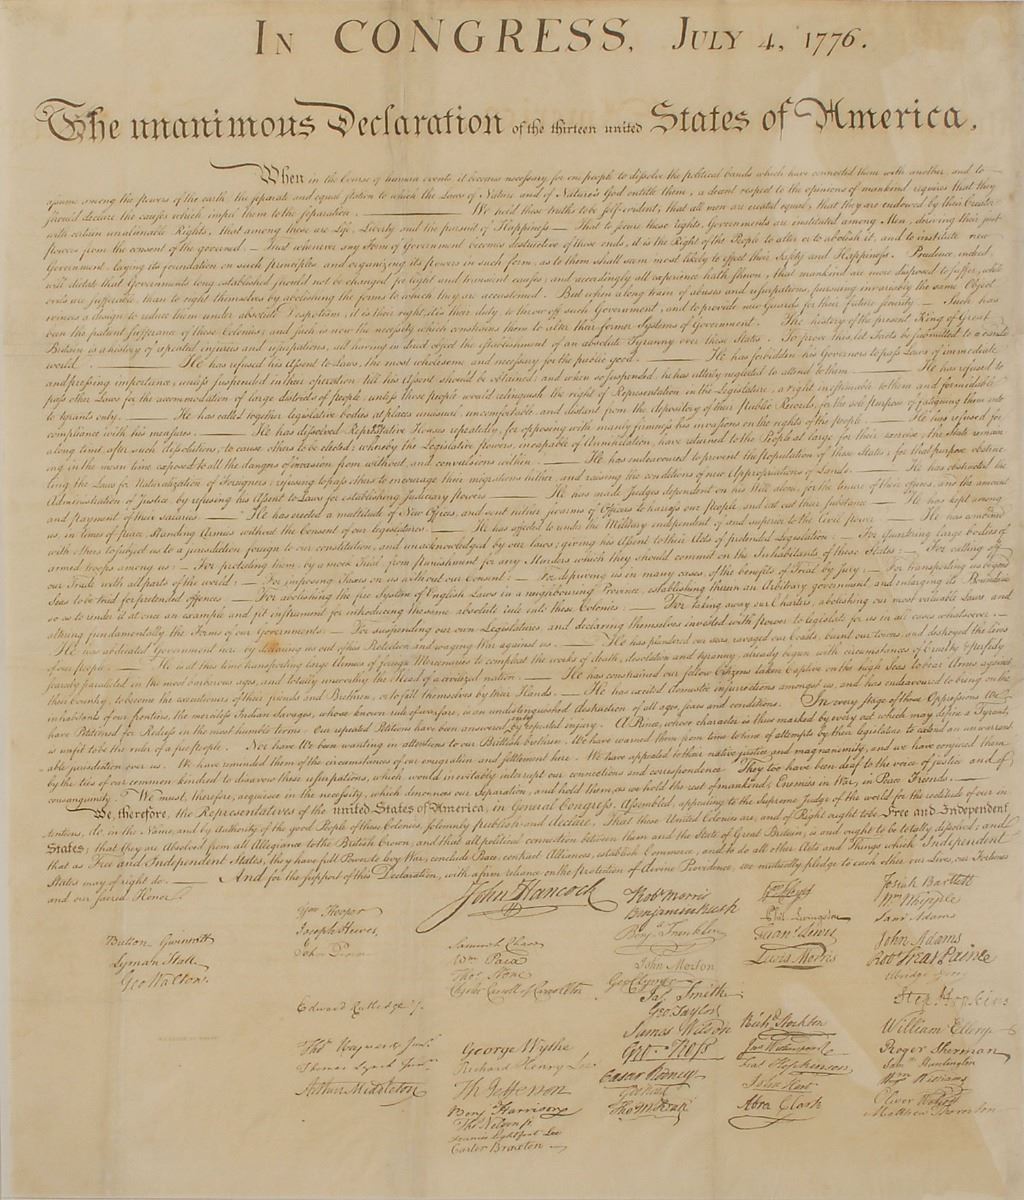 IN CONGRESS, JULY 4, 1776.
The unanimous Declaration of the thirteen united States of America,
When in the Course of human events, it becomes necessary for one people to dissolve the political bands which have connected them with another, and to
assume among the powers of the earth, the separate and equal station to which the Laws of Nature and of Nature's God entitle them, a decent respect to the opinions of mankind requires that they
should declare the causes which impel them to the separation. — We hold these truths to be self-evident, that all men are created equal, that they are endowed by their Creator
with certain unalienable Rights, that among these are Life, Liberty and the pursuit of Happiness — That to secure these rights, Governments are instituted among Men, deriving their just
powers from the consent of the governed, — That whenever any Form of Government becomes destructive of these ends, it is the Right of the People to alter or to abolish it, and to institute new
Government, laying its foundation on such principles and organizing its powers in such form, as to them shall seem most likely to effect their Safety and Happiness. Prudence, indeed,
will dictate that Governments long established should not be changed for light and transient causes; and accordingly all experience hath shewn, that mankind are more disposed to suffer, while
evils are sufferable, than to right themselves by abolishing the forms to which they are accustomed. But when a long train of abuses and usurpations, pursuing invariably the same Object
evinces a design to reduce them under absolute Despotism, it is their right, it is their duty, to throw off such Government, and to provide new Guards for their future security. — Such has
been the patient sufferance of these Colonies; and such is now the necessity which constrains them to alter their former Systems of Government. The history of the present King of Great
Britain is a history of repeated injuries and usurpations, all having in direct object the establishment of an absolute Tyranny over these States. To prove this, let Facts be submitted to a candid
world. — He has refused his Assent to Laws, the most wholesome and necessary for the public good. — He has forbidden his Governors to pass Laws of immediate
and pressing importance, unless suspended in their operation till his Assent should be obtained; and when so suspended, he has utterly neglected to attend to them. — He has refused to
pass other Laws for the accommodation of large districts of people, unless those people would relinquish the right of Representation in the Legislature, a right inestimable to them and formidable
to tyrants only. — He has called together legislative bodies at places unusual, uncomfortable, and distant from the depository of their Public Records, for the sole purpose of fatiguing them into
compliance with his measures. — He has dissolved Representative Houses repeatedly, for opposing with manly firmness his invasions on the rights of the people. — He has refused for
a long time, after such dissolutions, to cause others to be elected; whereby the Legislative powers, incapable of Annihilation, have returned to the People at large for their exercise; the State remain
ing in the mean time exposed to all the dangers of invasion from without, and convulsions within. — He has endeavoured to prevent the population of these States; for that purpose obstruc
ting the Laws for Naturalization of Foreigners; refusing to pass others to encourage their migrations hither, and raising the conditions of new Appropriations of Lands. — He has obstructed the
Administration of Justice, by refusing his Assent to Laws for establishing Judiciary powers. — He has made Judges dependent on his Will alone, for the tenure of their offices, and the amount
and payment of their salaries. — He has erected a multitude of New Offices, and sent hither swarms of Officers to harrass our people, and eat out their substance. — He has kept among
us, in times of peace, Standing Armies without the Consent of our legislatures. — He has affected to render the Military independent of and superior to the Civil power. — He has combined
with others to subject us to a jurisdiction foreign to our constitution, and unacknowledged by our laws; giving his Assent to their Acts of pretended Legislation: — For Quartering large bodies of
armed troops among us: — For protecting them, by a mock Trial, from punishment for any Murders which they should commit on the Inhabitants of these States: — For cutting off
our Trade with all parts of the world: — For imposing Taxes on us without our Consent: — For depriving us in many cases, of the benefits of Trial by Jury: — For transporting us beyond
Seas to be tried for pretended offences — For abolishing the free System of English Laws in a neighbouring Province, establishing therein an Arbitrary government, and enlarging its Boundaries
so as to render it at once an example and fit instrument for introducing the same absolute rule into these Colonies: — For taking away our Charters, abolishing our most valuable Laws, and
altering fundamentally the Forms of our Governments: — For suspending our own Legislatures, and declaring themselves invested with power to legislate for us in all cases whatsoever. —
He has abdicated Government here, by declaring us out of his Protection and waging War against us. — He has plundered our seas, ravaged our Coasts, burnt our towns, and destroyed the lives
of our people. — He is at this time transporting large Armies of foreign Mercenaries to compleat the works of death, desolation and tyranny, already begun with circumstances of Cruelty & perfidy
scarcely paralleled in the most barbarous ages, and totally unworthy the Head of a civilized nation. — He has constrained our fellow Citizens taken Captive on the high Seas to bear Arms against
their Country, to become the executioners of their friends and Brethren, or to fall themselves by their Hands. — He has excited domestic insurrections amongst us, and has endeavoured to bring on the
inhabitants of our frontiers, the merciless Indian Savages, whose known rule of warfare, is an undistinguished destruction of all ages, sexes and conditions. In every stage of these Oppressions We
have Petitioned for Redress in the most humble terms: Our repeated Petitions have been answered only by repeated injury. A Prince, whose character is thus marked by every act which may define a Tyrant,
is unfit to be the ruler of a free people. Nor have We been wanting in attentions to our Brittish brethren. We have warned them from time to time of attempts by their legislature to extend an unwarrant
able jurisdiction over us. We have reminded them of the circumstances of our emigration and settlement here. We have appealed to their native justice and magnanimity, and we have conjured them
by the ties of our common kindred to disavow these usurpations, which, would inevitably interrupt our connections and correspondence. They too have been deaf to the voice of justice and of
consanguinity. We must, therefore, acquiesce in the necessity, which denounces our Separation, and hold them, as we hold the rest of mankind, Enemies in War, in Peace Friends. —
We, therefore, the Representatives of the united States of America, in General Congress, Assembled, appealing to the Supreme Judge of the world for the rectitude of our in
tentions, do, in the Name, and by Authority of the good People of these Colonies, solemnly publish and declare, That these United Colonies are, and of Right ought to be Free and Independent
States; that they are Absolved from all Allegiance to the British Crown, and that all political connection between them and the State of Great Britain, is and ought to be totally dissolved; and
that as Free and Independent States, they have full Power to levy War, conclude Peace, contract Alliances, establish Commerce, and to do all other Acts and Things which Independent
States may of right do. — And for the support of this Declaration, with a firm reliance on the protection of divine Providence, we mutually pledge to each other our Lives, our Fortunes
and our sacred Honor.
Button Gwinnett
Lyman Hall
Geo Walton.
Wm Hooper
Joseph Hewes,
John Penn
Edward Rutledge /.
Thos Heyward Junr.
Thomas Lynch Junr.
Arthur Middleton
John Hancock
Samuel Chase
Wm Paca
Thos Stone
Charles Carroll of Carrollton
George Wythe
Richard Henry Lee
Th Jefferson
Benj Harrison
Thos Nelson jr.
Francis Lightfoot Lee
Carter Braxton
Robt Morris
Benjamin Rush
Benja Franklin
John Morton
Geo Clymer
Jas. Smith
Geo. Taylor
James Wilson
Geo. Ross
Caesar Rodney
Geo Read
Tho M:Kean
Wm Floyd
Phil. Livingston
Frans. Lewis
Lewis Morris
Richd. Stockton
Jno Witherspoon
Fras. Hopkinson
John Hart
Abra Clark
Josiah Bartlett
Wm Whipple
Saml Adams
John Adams
Robt Treat Paine
Elbridge Gerry
Step. Hopkins
William Ellery
Roger Sherman
Saml Huntington
Wm Williams
Oliver Wolcott
Matthew Thornton